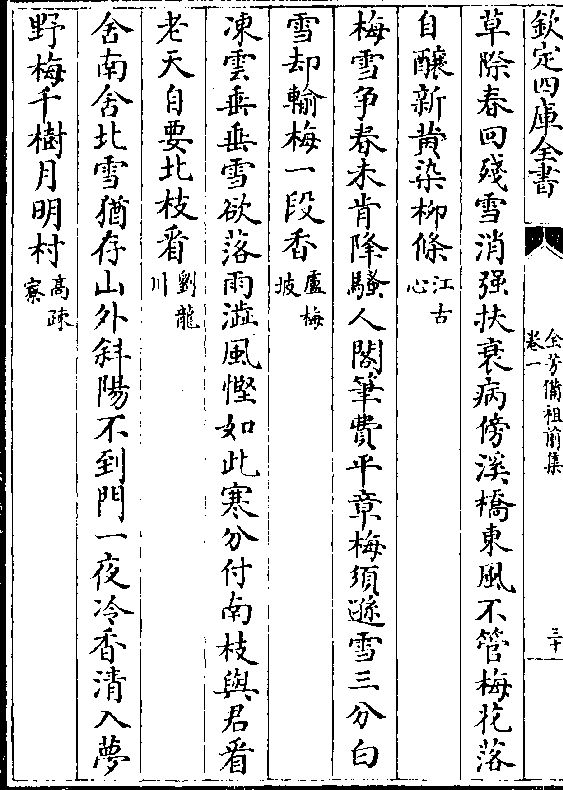 欽定四庫全書
全芳備祖前集
卷一
三十
草際春回殘雪消强扶衰病傍溪橋東風不管梅花落
自釀新黄染柳條江古心
梅雪争春未肯降騷人閣筆費平章梅須遜雪三分白
雪却輸梅一段香盧梅坡
凍雲垂垂雪欲落雨澁風慳如此寒分付南枝與君看
老天自要北枝看劉龍川
舍南舍北雪猶存山外斜陽不到門一夜冷香清入夢
野梅千樹月明村高疎寮